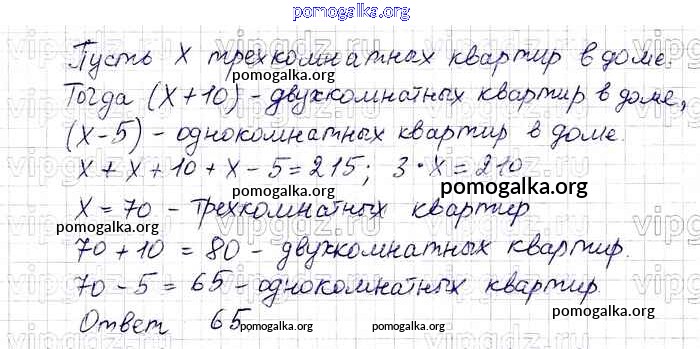 pomogalka.org
Пусть х трехкомнатных квартир в доме.
pomogalka.org
Тогда (х+10) - двухкомнатных квартир в доме,
(х-5) - однокомнатных квартир в доме.
х + х + 10 + х - 5 = 215; 3 · х = 210
pomogalka.org pomogalka.org
х = 70 - трехкомнатных квартир
pomogalka.org
70 + 10 = 80 - двухкомнатных квартир.
pomogalka.org
70 - 5 = 65 - однокомнатных квартир
pomogalka.org
Ответ 65 pomogalka.org pomogalka.org pomogalka.org